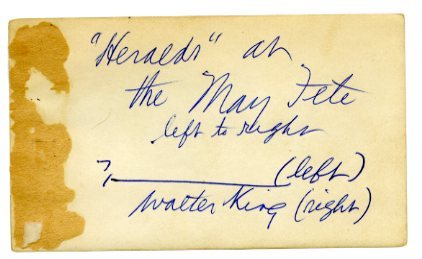 "Heralds" at
the May Fete
left to right
?, __________ (left)
Walter King (right)